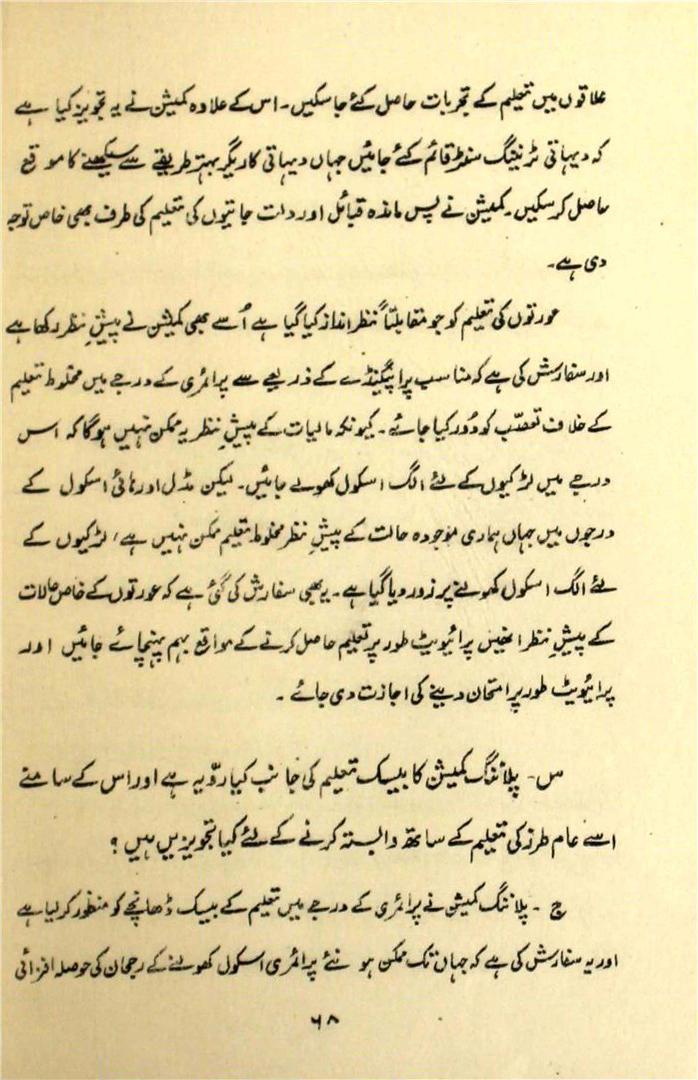 علاقوں میں تعلیم کے تجربات حاصل کئے جا سکیں۔ اس کے علاوہ کمیشن نے یہ تجویز کیا ہے
کہ دیہاتی ٹریننگ سنٹر قائم کئے جائیں جہاں دیہاتی کاریگر بہتر طریقے سے سیکھنے کا موقع
حاصل کر سکیں۔ کمیشن نے پس ماندہ قبائل اور دلت جاتیوں کی تعلیم کی طرف بھی خاص توجہ
دی ہے۔
عورتوں کی تعلیم کو جو مقابلتاً نظر انداز کیا گیا ہے اُسے بھی کمیشن نے پیشِ نظر رکھا ہے
اور سفارش کی ہے کہ مناسب پراپیگنڈے کے ذریعے سے پرائمری کے درجے میں مخلوط تعلیم
کے خلاف تعصّب کو دُور کیا جائے۔ کیونکہ مالیات کے پیشِ نظر یہ ممکن نہیں ہوگا کہ اس
درجے میں لڑکیوں کے لئے الگ اسکول کھولے جائیں۔ لیکن مڈل اور ہائی اسکول کے
درجوں میں جہاں ہماری موجودہ حالت کے پیشِ نظر مخلوط تعلیم ممکن نہیں ہے، لڑکیوں کے
لئے الگ اسکول کھولنے پر زور دیا گیا ہے۔ یہ بھی سفارش کی گئی ہے کہ عورتوں کے خاص حالات
کے پیشِ نظر انھیں پرائیویٹ طور پر تعلیم حاصل کرنے کے مواقع بہم پہنچائے جائیں اور
پرائیویٹ طور پر امتحان دینے کی اجازت دی جائے۔
س۔ پلاننگ کمیشن کا بیسک تعلیم کی جانب کیا روّیہ ہے اور اس کے سامنے
اسے عام طرز کی تعلیم کے ساتھ وابستہ کرنے کے لئے کیا تجویزیں ہیں؟
ج۔ پلاننگ کمیشن نے پرائمری کے درجے میں تعلیم کے بیسک ڈھانچے کو منظور کر لیا ہے
اور یہ سفارش کی ہے کہ جہاں تک ممکن ہو نئے پرائمری اسکول کھولنے کے رجحان کی حوصلہ افزائی
۶۸